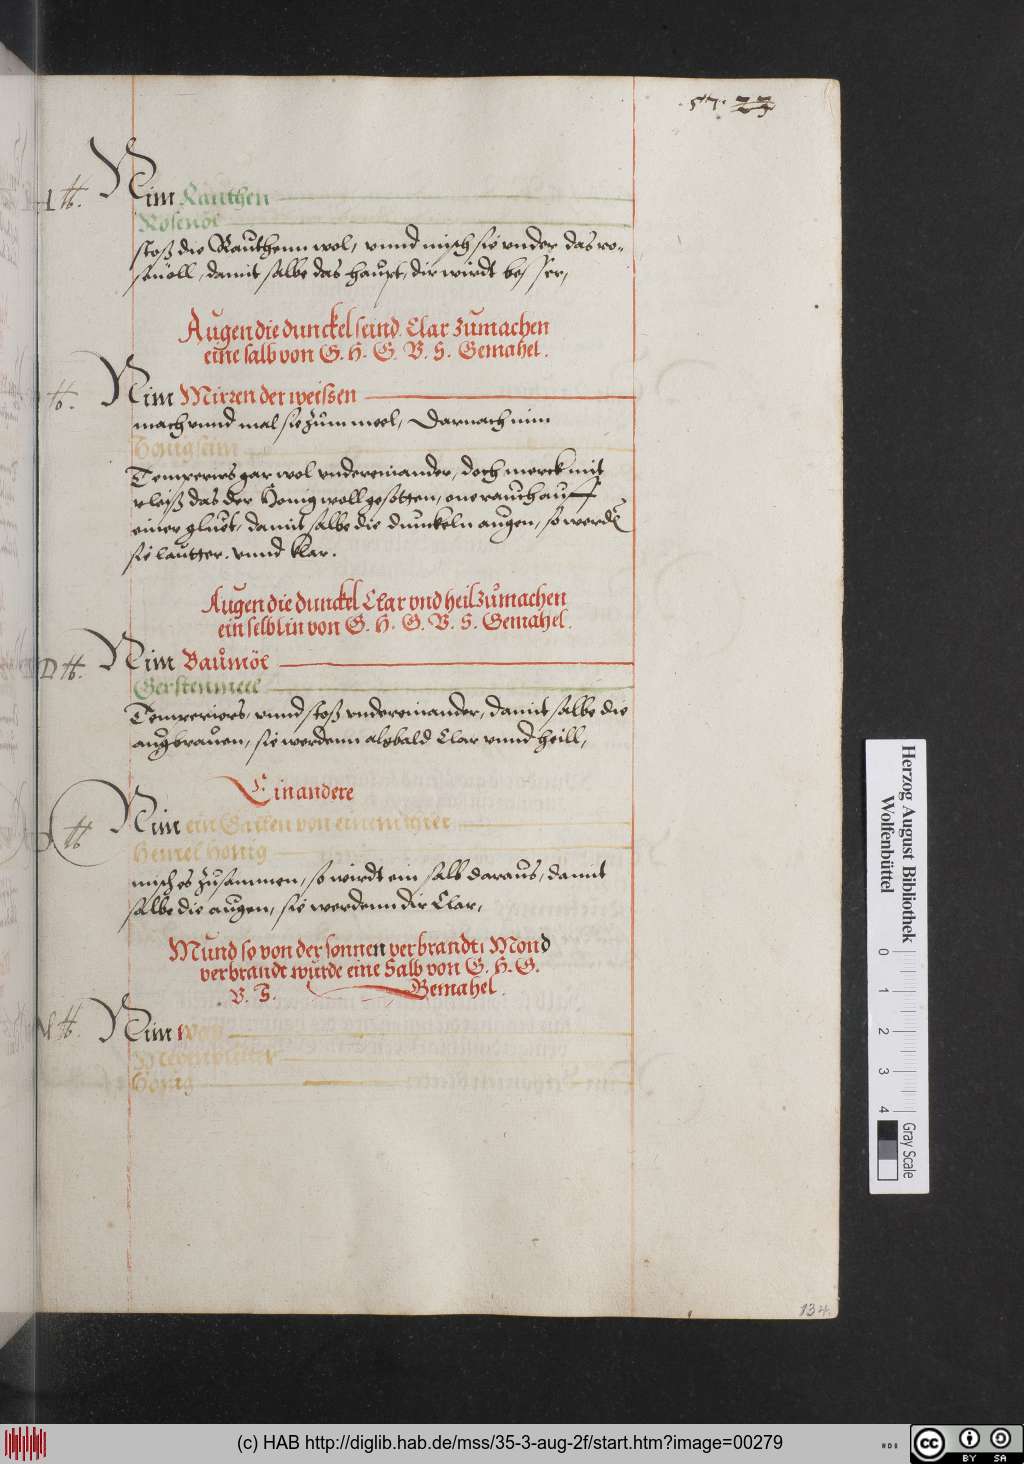 57. 23
Nim Rauthen
Rosenöl
stoß die Rauthenn wol, vnnd misch sie vnder das ro-
senöll, damit salbe das haůpt, dir wirdt besser,
Aůgen die dunckel seind, Clar zůmachen
eine salb von G. H. G. V. S. Gemahel.
Nim Mirren der weissen
mach vnnd mal sie zům meel, Darnach nim
Honigseim
Temperirs gar wol vndereinander, doch merck mit
vleiß das der Honig woll gesotten, one rauch auff
einer glůet, damit salbe die dunckeln augen, so werdē
sie lautter. vnnd klar.
Aůgen die dunckel Clar vnd heil zůmachen
ein selblin von G. H. G. V. S. Gemahel.
Nim Baůmöl
Gerstenmeel
Temperiers, vnnd stoß vndereinander, damit salbe die
aůgbraůen, sie werdenn alsbald Clar vnnd heill,
Ein andere
Nim ein Gallen von einem thier
Honig
misch es zůsammen, so wirdt ein salb daraůs, damit
salbe die augen, sie werdenn dir Clar,
Můnd so von der sonnen verbrandt, Mond
verbrandt würde eine Salb von G. H. G.
V. S. Gemahel.
Nim
Honig
134.
Herzog August Bibliothek
Wolfenbüttel
0 1 2 3 4
Gray Scale
(c) HAB http://diglib.hab.de/mss/35-3-aug-2f/start.htm?image=00279
cc BY SA